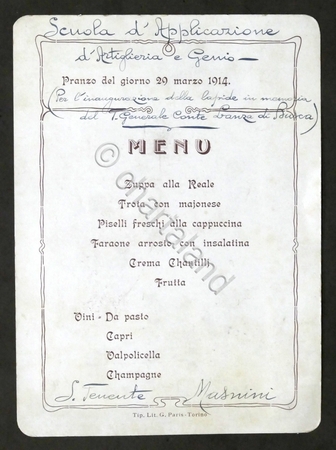 Scuola d'Applicazione
d'Artiglieria e Genio —
Pranzo del giorno 29 marzo 1914.
(Per l'inaugurazione della lapide in memoria
del T. Generale Conte Lanza di Busca
MENU
Zuppa alla Reale
Trota con majonese
Piselli freschi alla cappuccina
Faraone arrosto con insalatina
Crema Chantilli
Frutta
Vini - Da pasto
Capri
Valpolicella
Champagne
S. Tenente Masnini
Tip. Lit. G. Paris - Torino
© chartaland